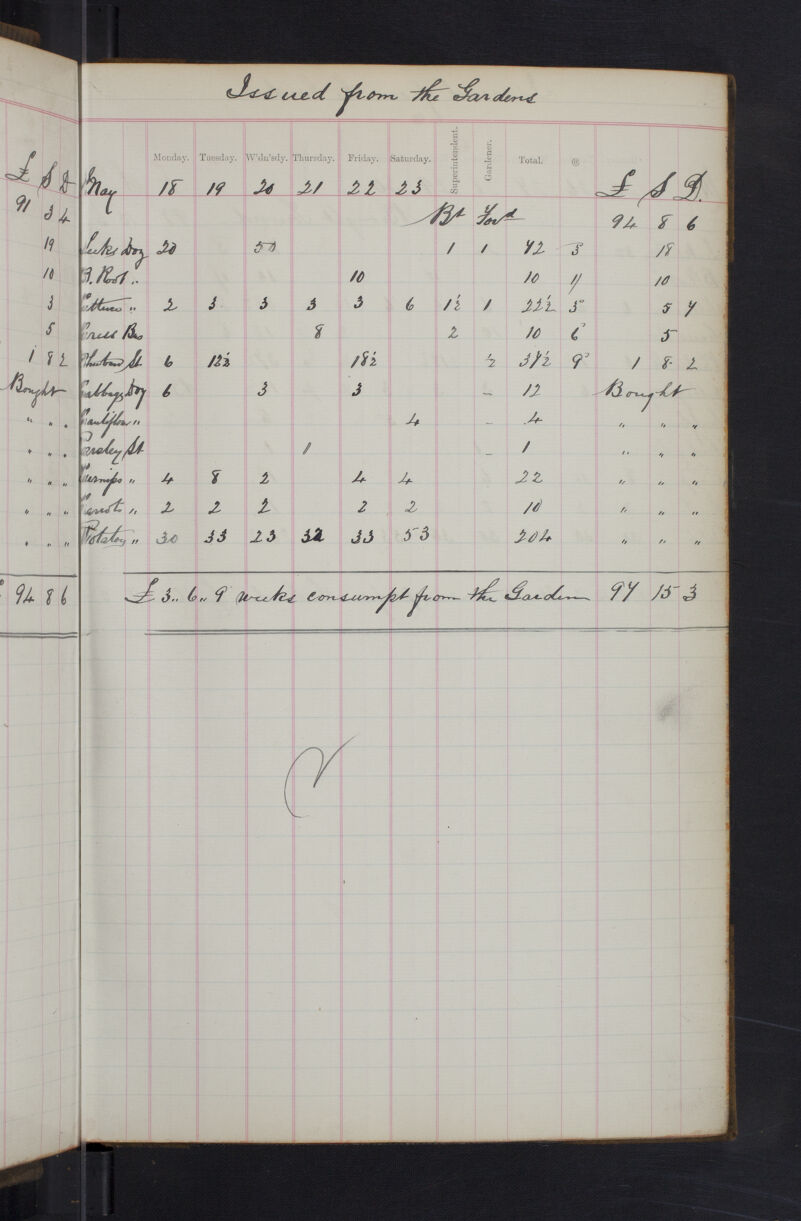 Issued from the Gardens
Monday. Tuesday. W'dn'sdy. Thursday. Friday. Saturday. Superintendent. Gardener. Total. @
£ S D
May 18 19 20 21 22 23 £ S D.
91 3 4
Bt Ford 94 8 6
19 Leeks Doz 20 50 1 1 72 3 18
10 B. Root " 10 10 1/ 10
3 Lettuce " 2 3 3 3 3 6 1½ 1 22½ 3d 5 7
5 Cress Bas 8 2 10 6 5
1 8 2 Rhubarb St 6 12½ 18½ ½ 37½ 9d 1 8 2
Bought Cabbage Doz 6 3 3 - 12 Bought
" " " Cauliflow " 4 - 4 " " "
" " " Parsley St 1 - 1 " " "
" " " Turnips " 4 8 2 4 4 22 " " "
" " " Carrots " 2 2 2 2 2 10 " " "
" " " Potatoes " 30 33 23 32 33 53 204 " " "
£ 94 8 6 £ 3 " 6 " 9 weeks consumpt from the Garden 97 15 3